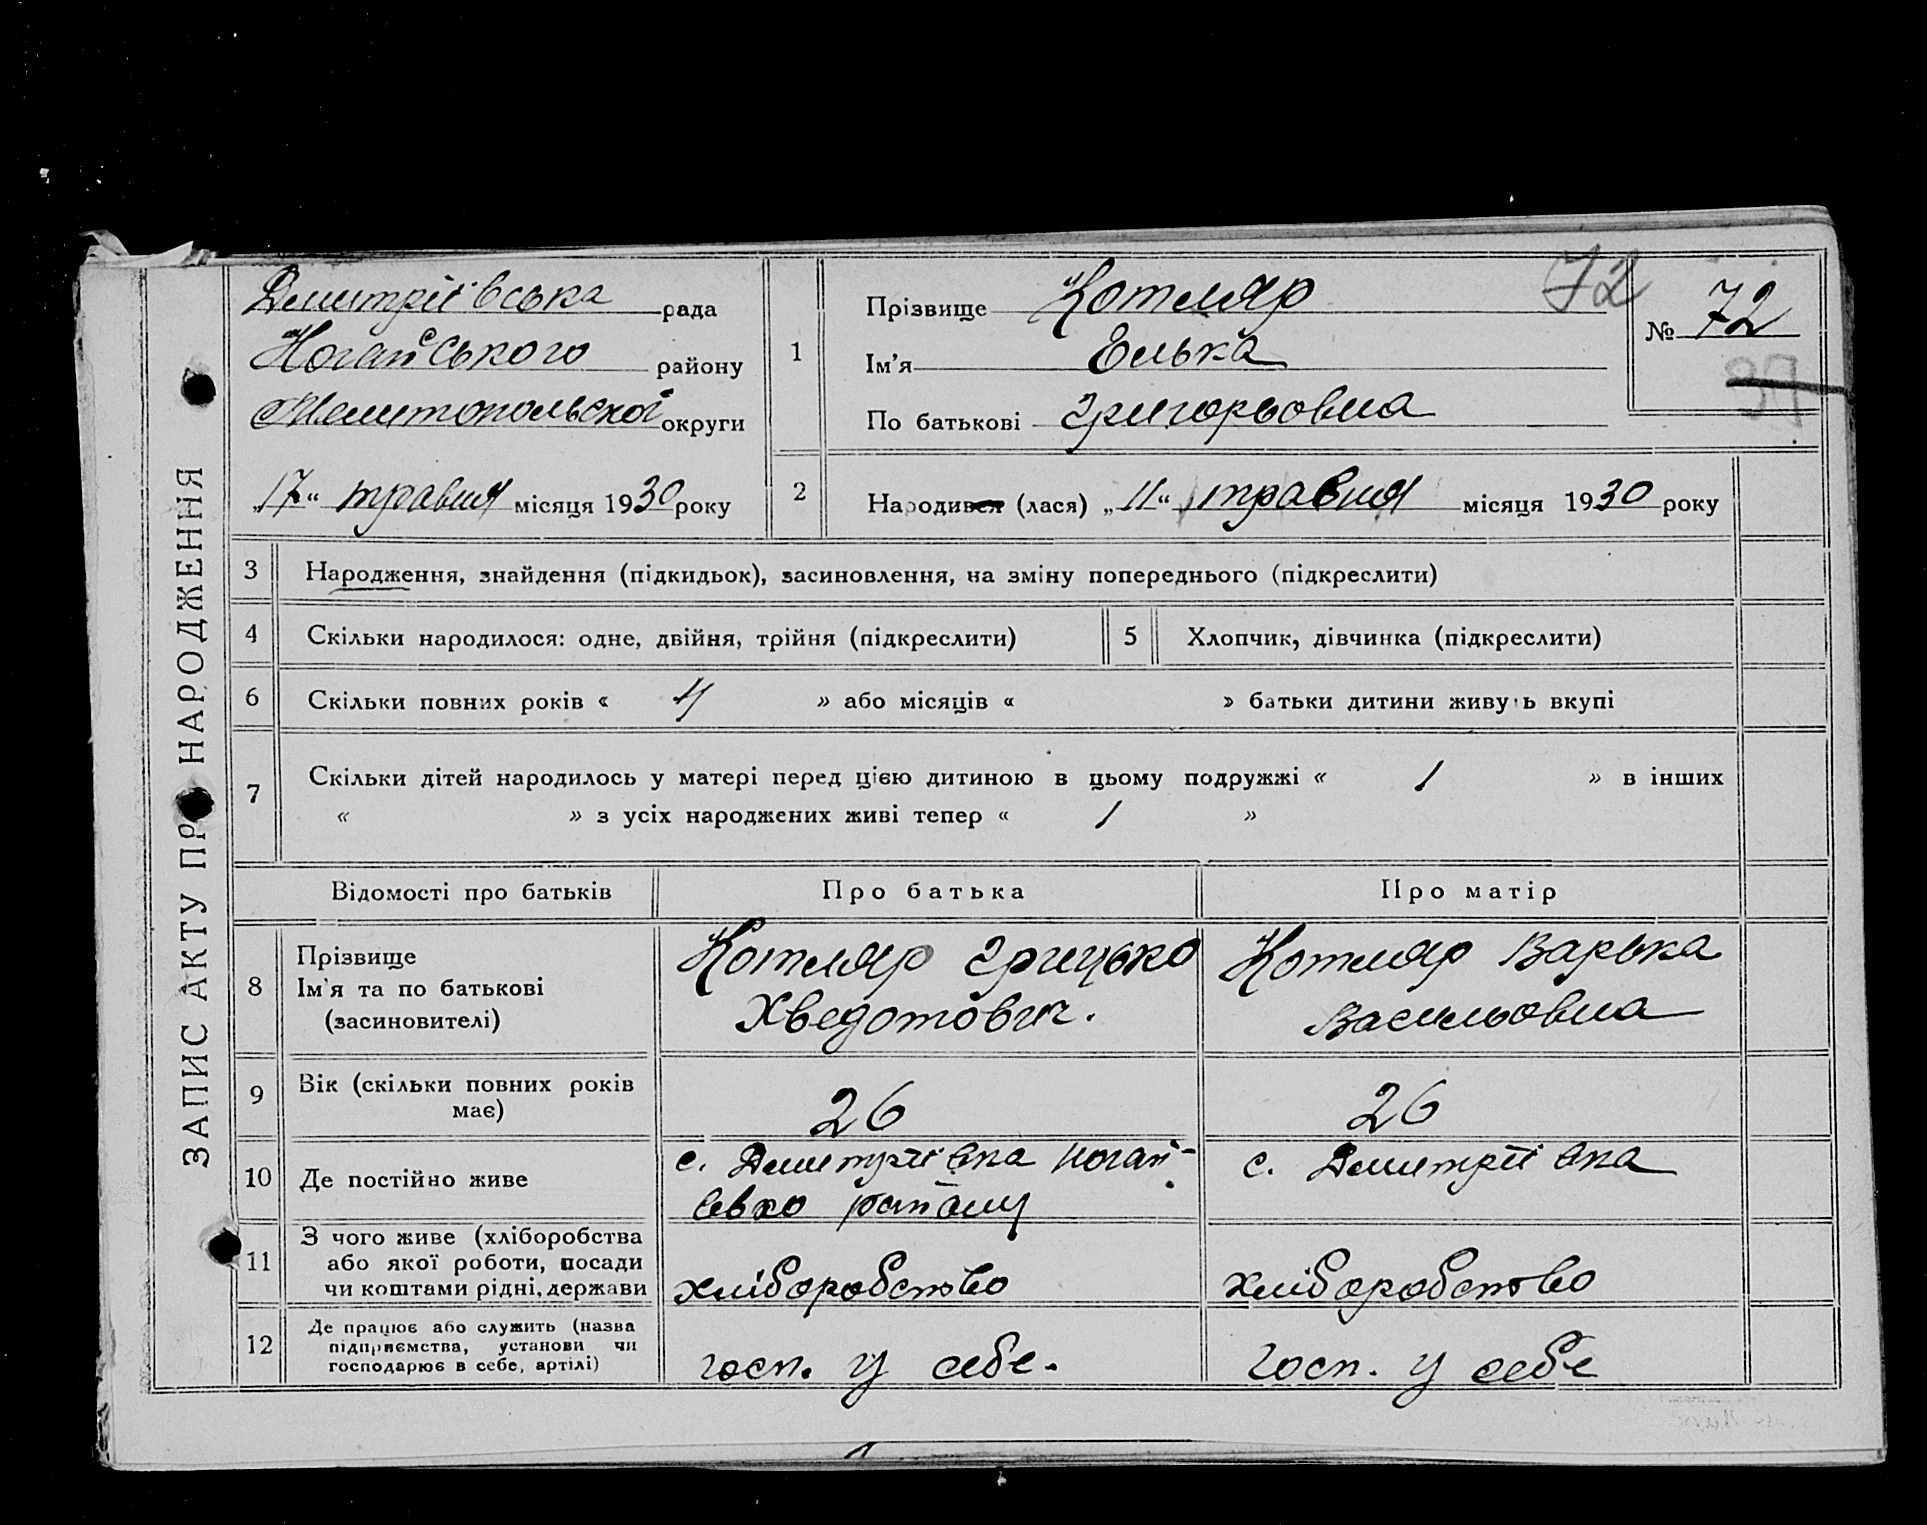 ЗАПИС АКТУ ПРО НАРОДЖЕННЯ
Дмитріївська рада
Ногайського району
Мелитопольскоі округи
„17“ травня місяця 1930 року
1
Прізвище Котляр
Ім’я Елька
По батькові Григорьовна
72
№ 72
37
2
Народився (лася) „11“ травня місяця 1930 року
3 Народження, знайдення (підкидьок), засиновлення, на зміну попереднього (підкреслити)
4 Скільки народилося: одне, двійня, трійня (підкреслити)
5 Хлопчик, дівчинка (підкреслити)
6 Скільки повних років « 4 » або місяців « » батьки дитини живуть вкупі
7 Скільки дітей народилось у матері перед цією дитиною в цьому подружжі « 1 » в інших
« » з усіх народжених живі тепер « 1 »
Відомості про батьків Про батька Про матір
8
Прізвище
Ім’я та по батькові
(засиновителі)
Котляр Грицько
Хведотович.
Котляр Варька
Васильовна
9
Вік (скільки повних років
має)
26
26
10 Де постійно живе
с. Дмитріївка Ногай-
світ району
с. Дмитріївка
11
З чого живе (хліборобства
або якої роботи, посади
чи коштами рідні, держави
хліборобство
хліборобство
12
Де працює або служить (назва
підприємства, установи чи
господарює в себе, артілі)
госп. у себе.
госп. у себе